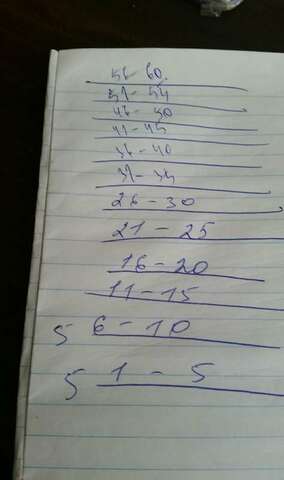 56 - 60
51 - 54
46 - 50
41 - 45
36 - 40
31 - 35
26 - 30
21 - 25
16 - 20
11 - 15
5 6 - 10
5 1 - 5